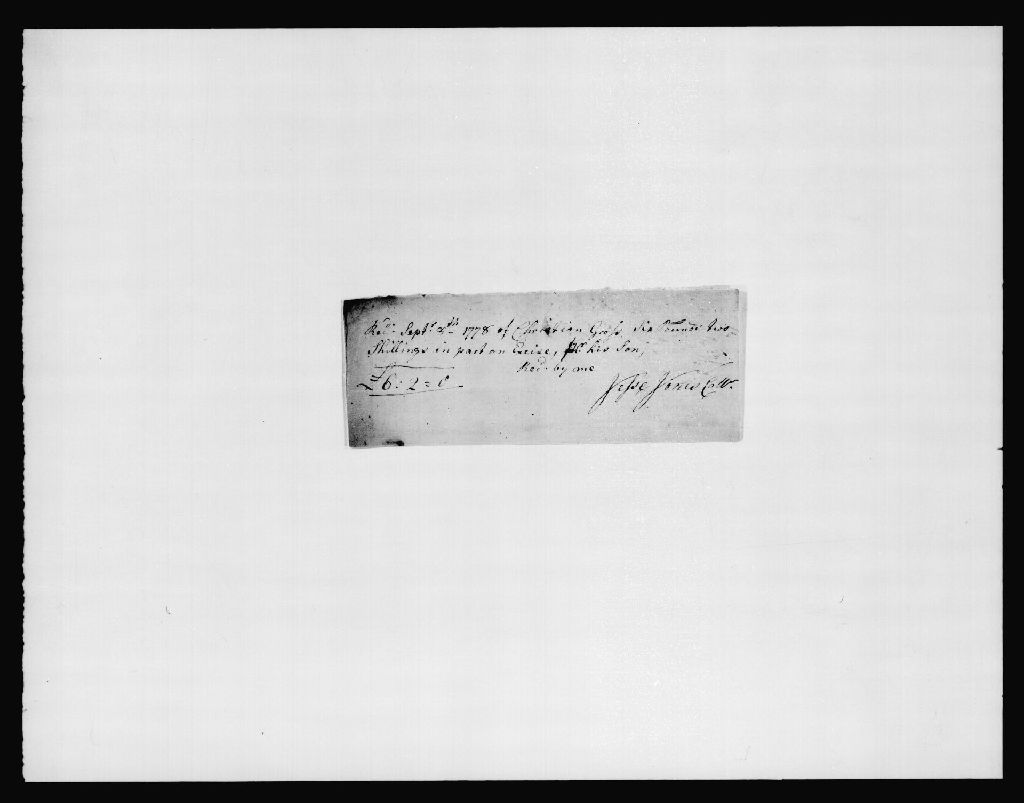 Recd. Septr. 2th 1778 of Christian Gross Six Pounds two
Shillings in part on Excise, pr. his Son,
Recd. by me
£6:2=0 Jesse Jones Coll.